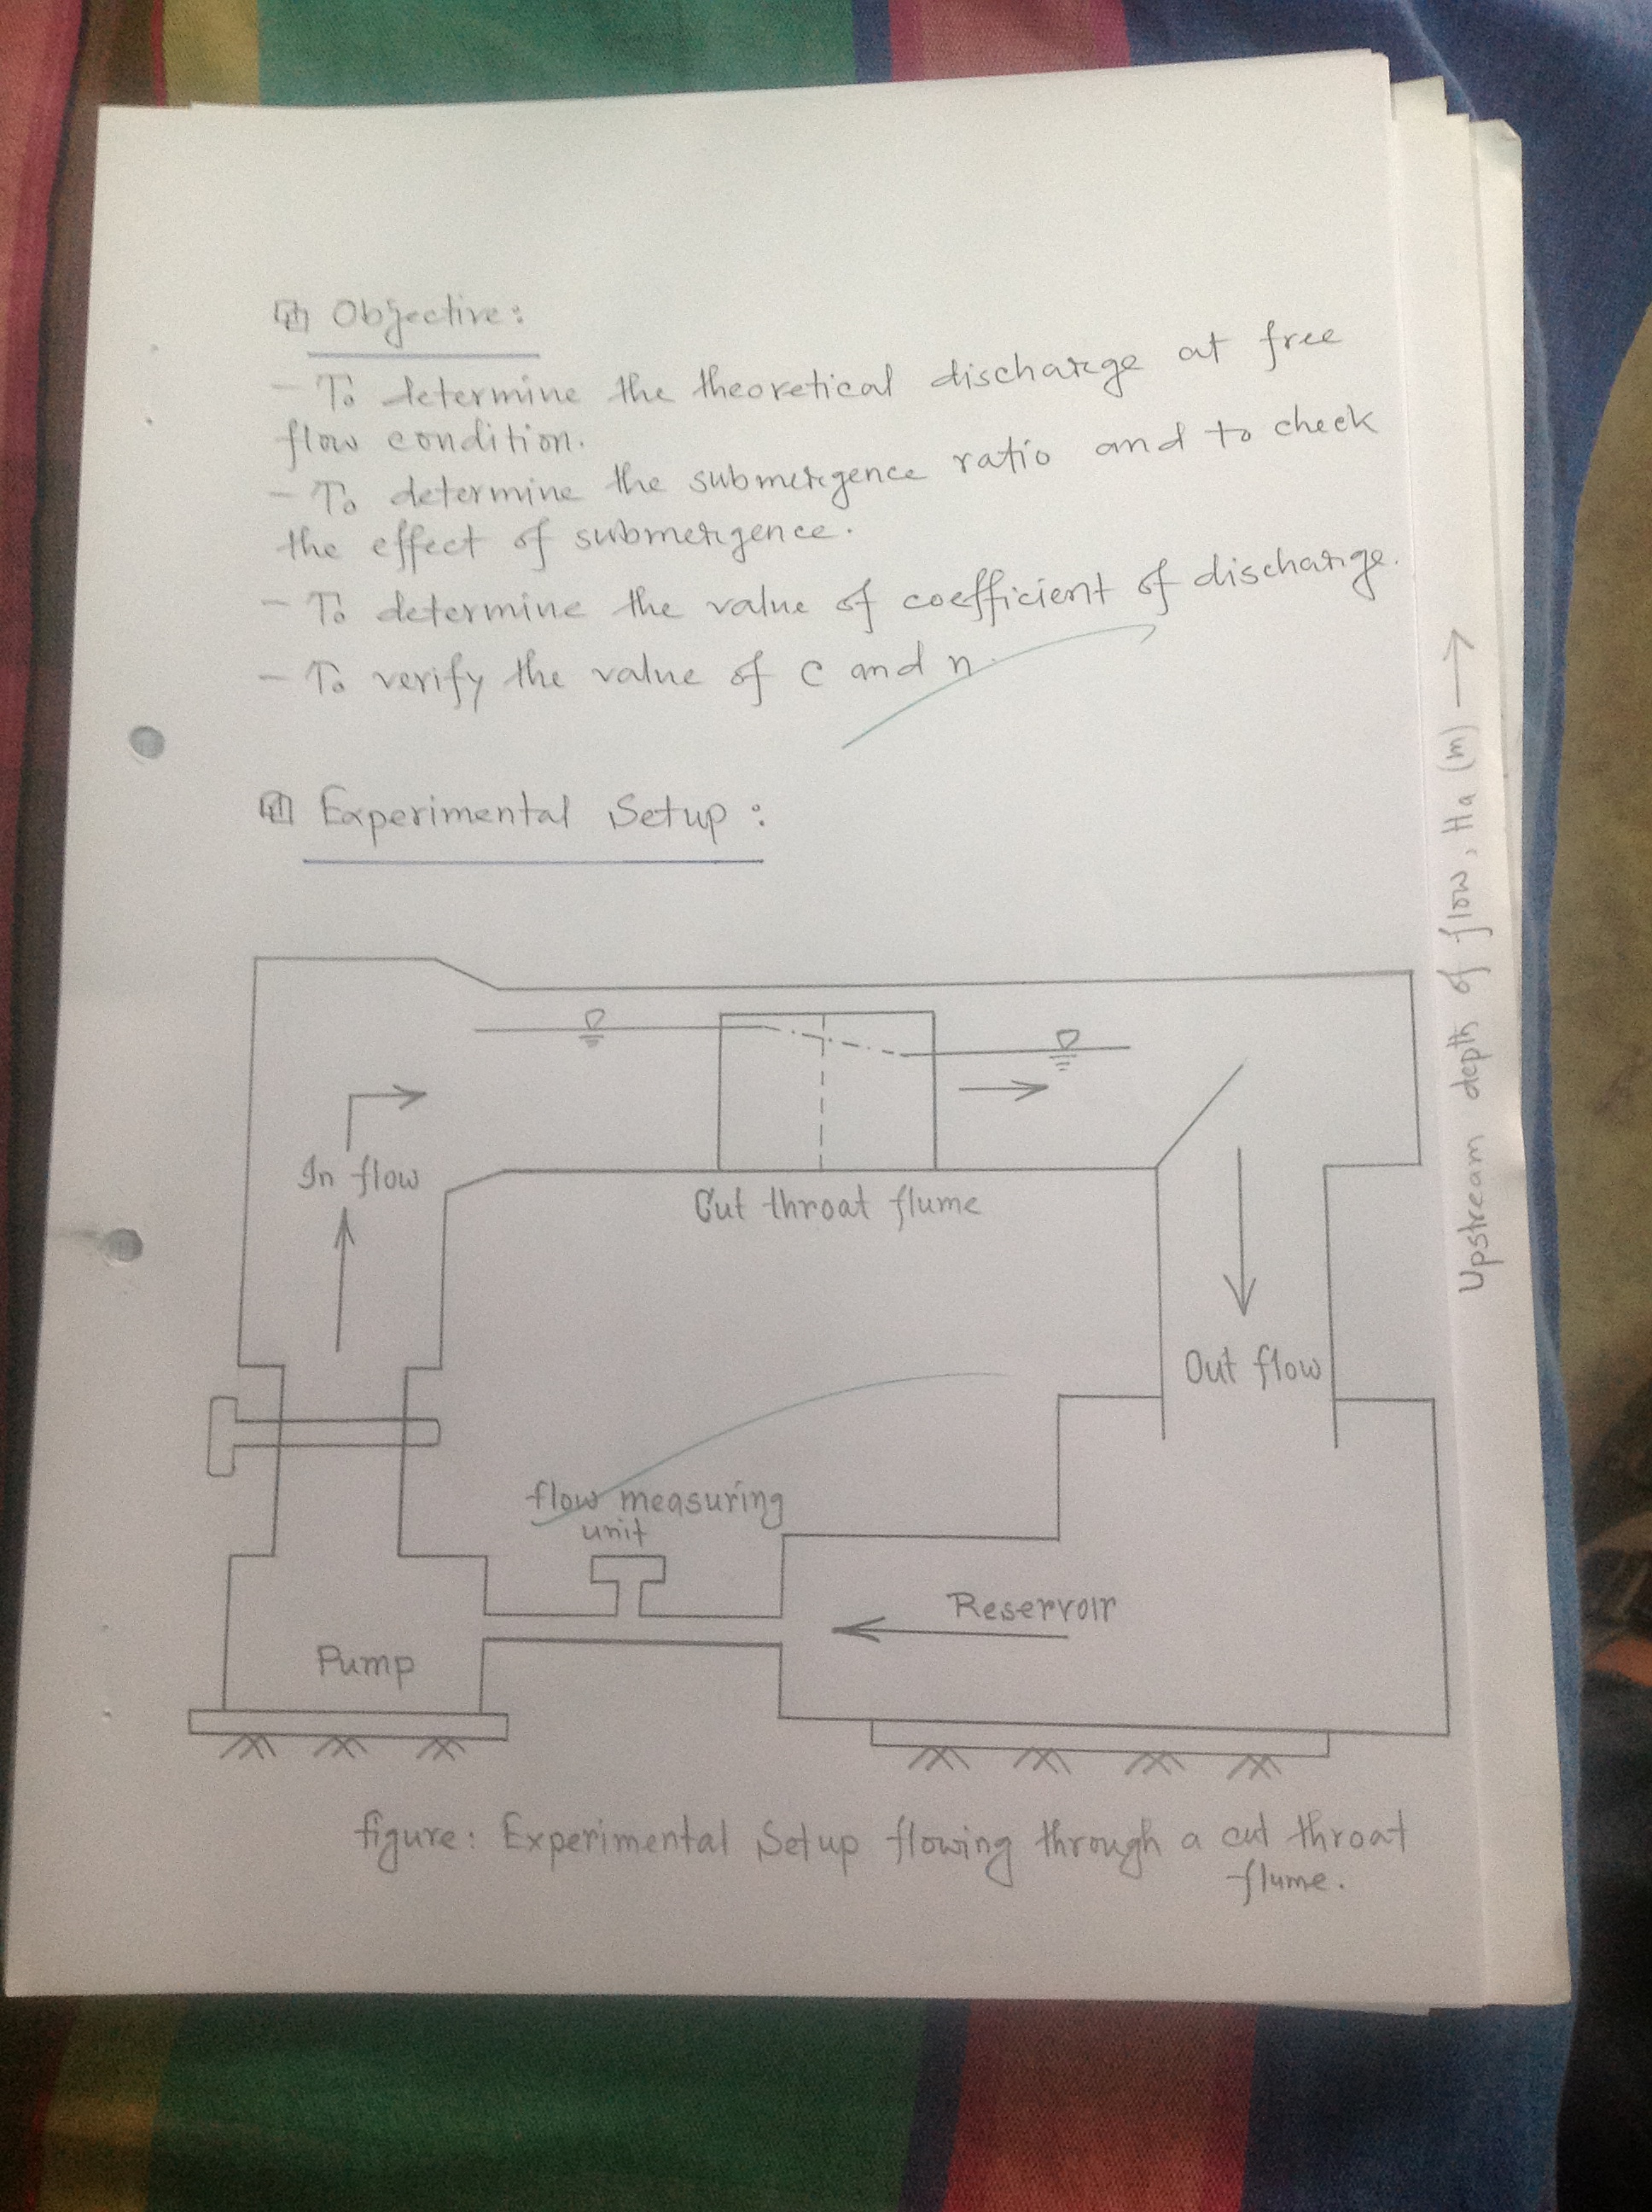 Objective:
- To determine the theoretical discharge at free
flow condition.
- To determine the submergence ratio and to check
the effect of submergence.
- To determine the value of coefficient of discharge.
- To verify the value of c and n.
Experimental Setup:
In flow
Cut throat flume
Out flow
flow measuring
unit
Reservoir
Pump
figure: Experimental Setup flowing through a cut throat
flume.
Upstream depth of flow, Ha (m) →